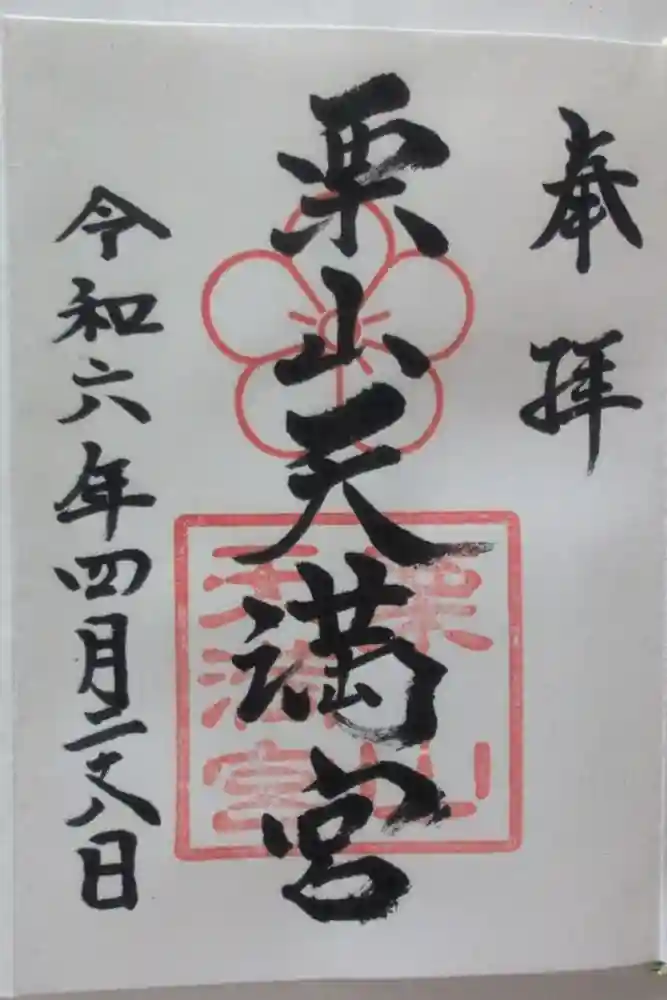 奉拝
栗山天満宮
令和六年四月二十八日
栗山
天満宮